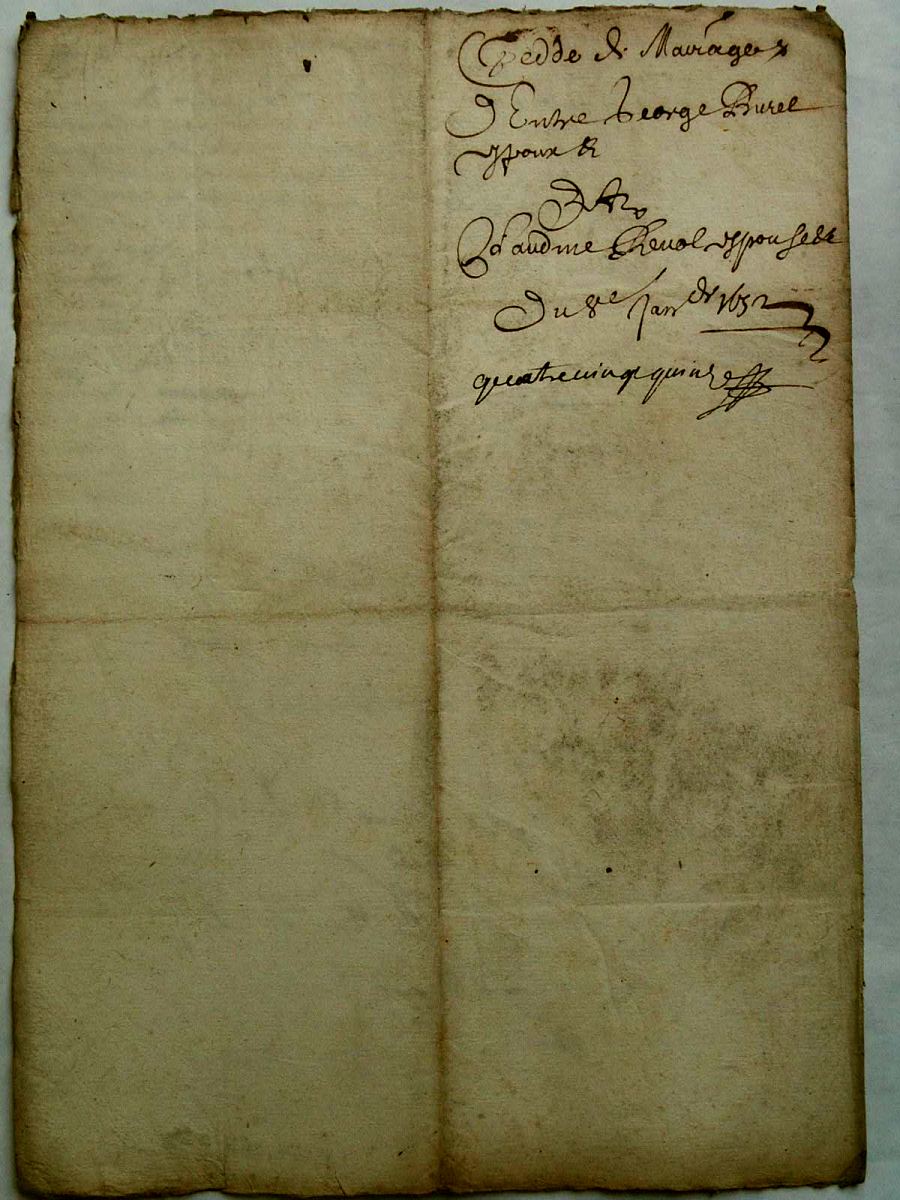 Cedde de Mariage
D'Entre George Burel
espoux &
Et
Claudine Revol espouse &
Du 8e Janer 1652
quatre vingt quinze